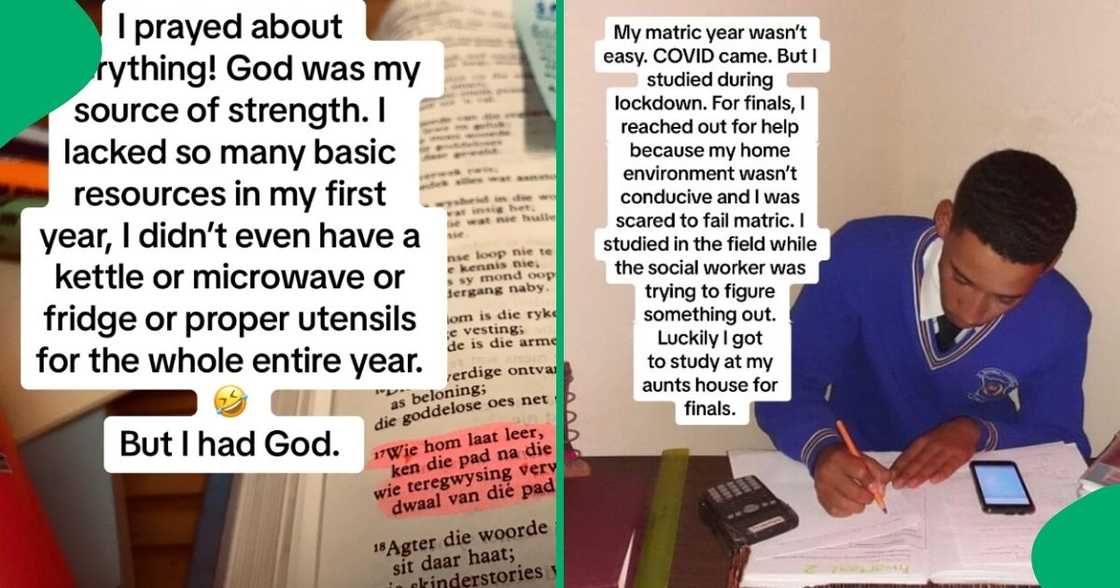 I prayed about
rything! God was my
source of strength. I
lacked so many basic
resources in my first
year, I didn't even have a
kettle or microwave or
fridge or proper utensils
for the whole entire year.
🤣
But I had God.
wat insig het;
nse loop nie te
e kennis nie;
s sy mond oop
dergang naby.
om is die ryke
e vesting;
de is die arme
verdige ontvan
as beloning;
die goddelose oes net
17Wie hom laat leer,
ken die pad na die
wie teregwysing verw
dwaal van dié pad
18Agter die woorde
sit daar haat;
skinderstories
My matric year wasn't
easy. COVID came. But I
studied during
lockdown. For finals, I
reached out for help
because my home
environment wasn't
conducive and I was
scared to fail matric. I
studied in the field while
the social worker was
trying to figure
something out.
Luckily I got
to study at my
aunts house for
finals.